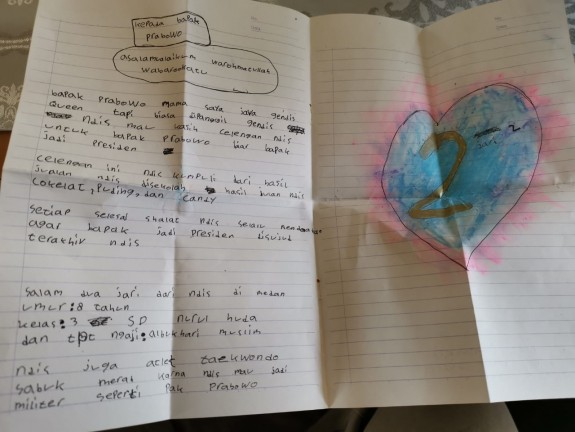 kepada bapak
Prabowo
asalamualaikum warohmatullah
wabarokatu
bapak Prabowo nama saya java gendis
Queen tapi biasa dipanggil gendis
ndis mau kasih celengan ndis
untuk bapak Prabowo biar bapak
jadi Presiden
celengan ini ndis kumpuli dari hasil
jualan ndis disekolah hasil jualan ndis
cokelat, Puding, dan candy
setiap selesai shalat ndis selalu mendoakan
agar bapak jadi Presiden disujud
terakhir ndis
salam dua jari dari ndis di medan
umur: 8 tahun
kelas: 3 SD nurul huda
dan tpt ngaji: albukhari muslim
ndis juga atlet taekwondo
sabuk merah karna ndis mau jadi
militer seperti Pak Prabowo
2
2